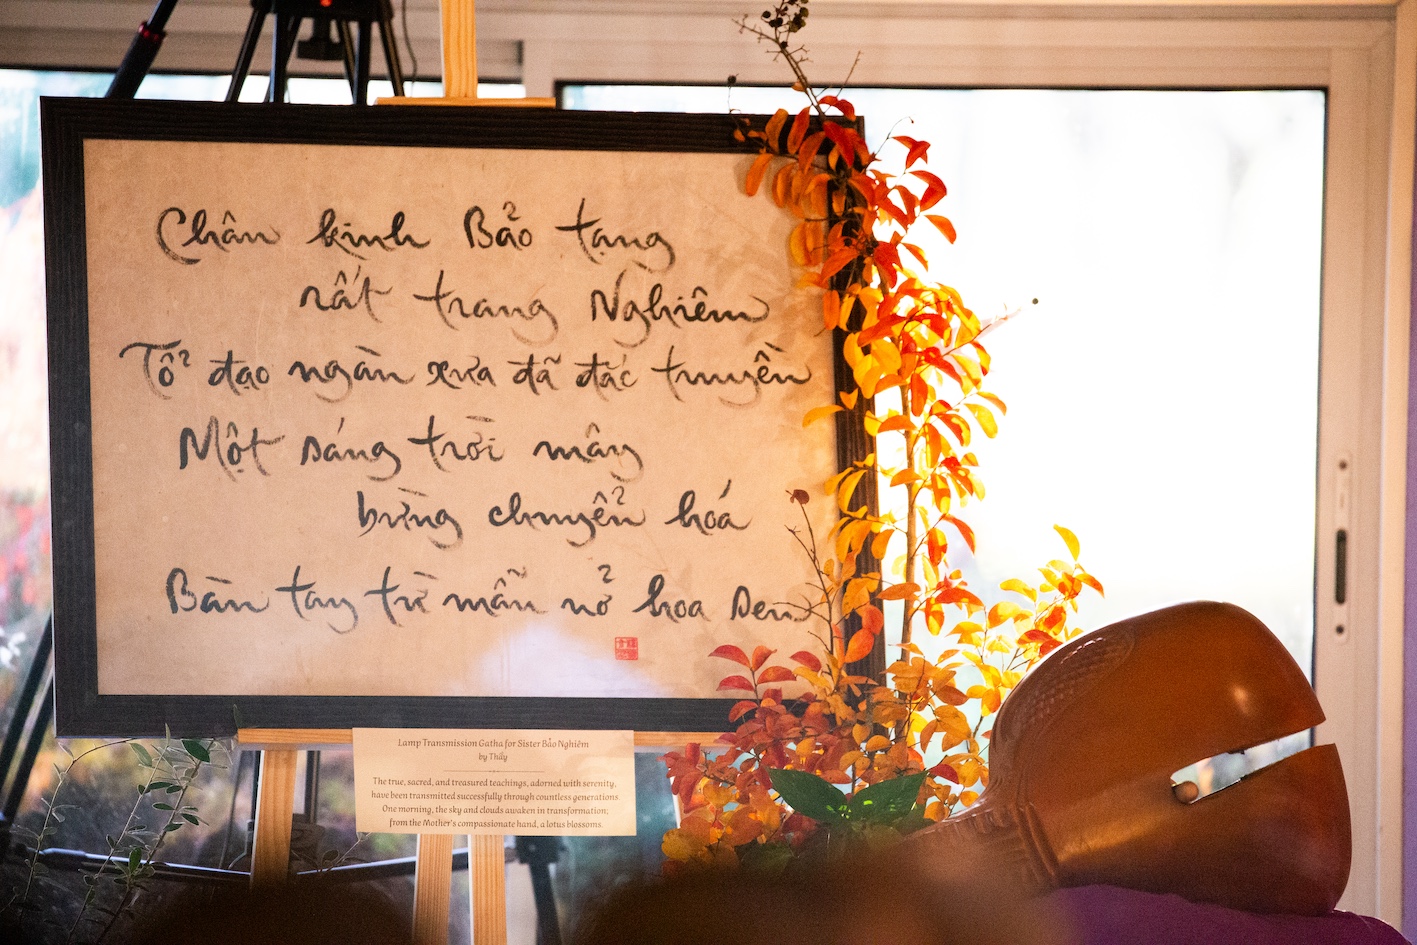 Chân kinh Bảo tạng
rất trang Nghiêm
Tổ đạo ngàn xưa đã đắc truyền
Một sáng trời mây
bừng chuyển hóa
Bàn tay từ mẫu nở hoa sen
Lamp Transmission Gatha for Sister Bảo Nghiêm
by Thầy
The true, sacred, and treasured teachings, adorned with serenity,
have been transmitted successfully through countless generations.
One morning, the sky and clouds awaken in transformation;
from the Mother's compassionate hand, a lotus blossoms.